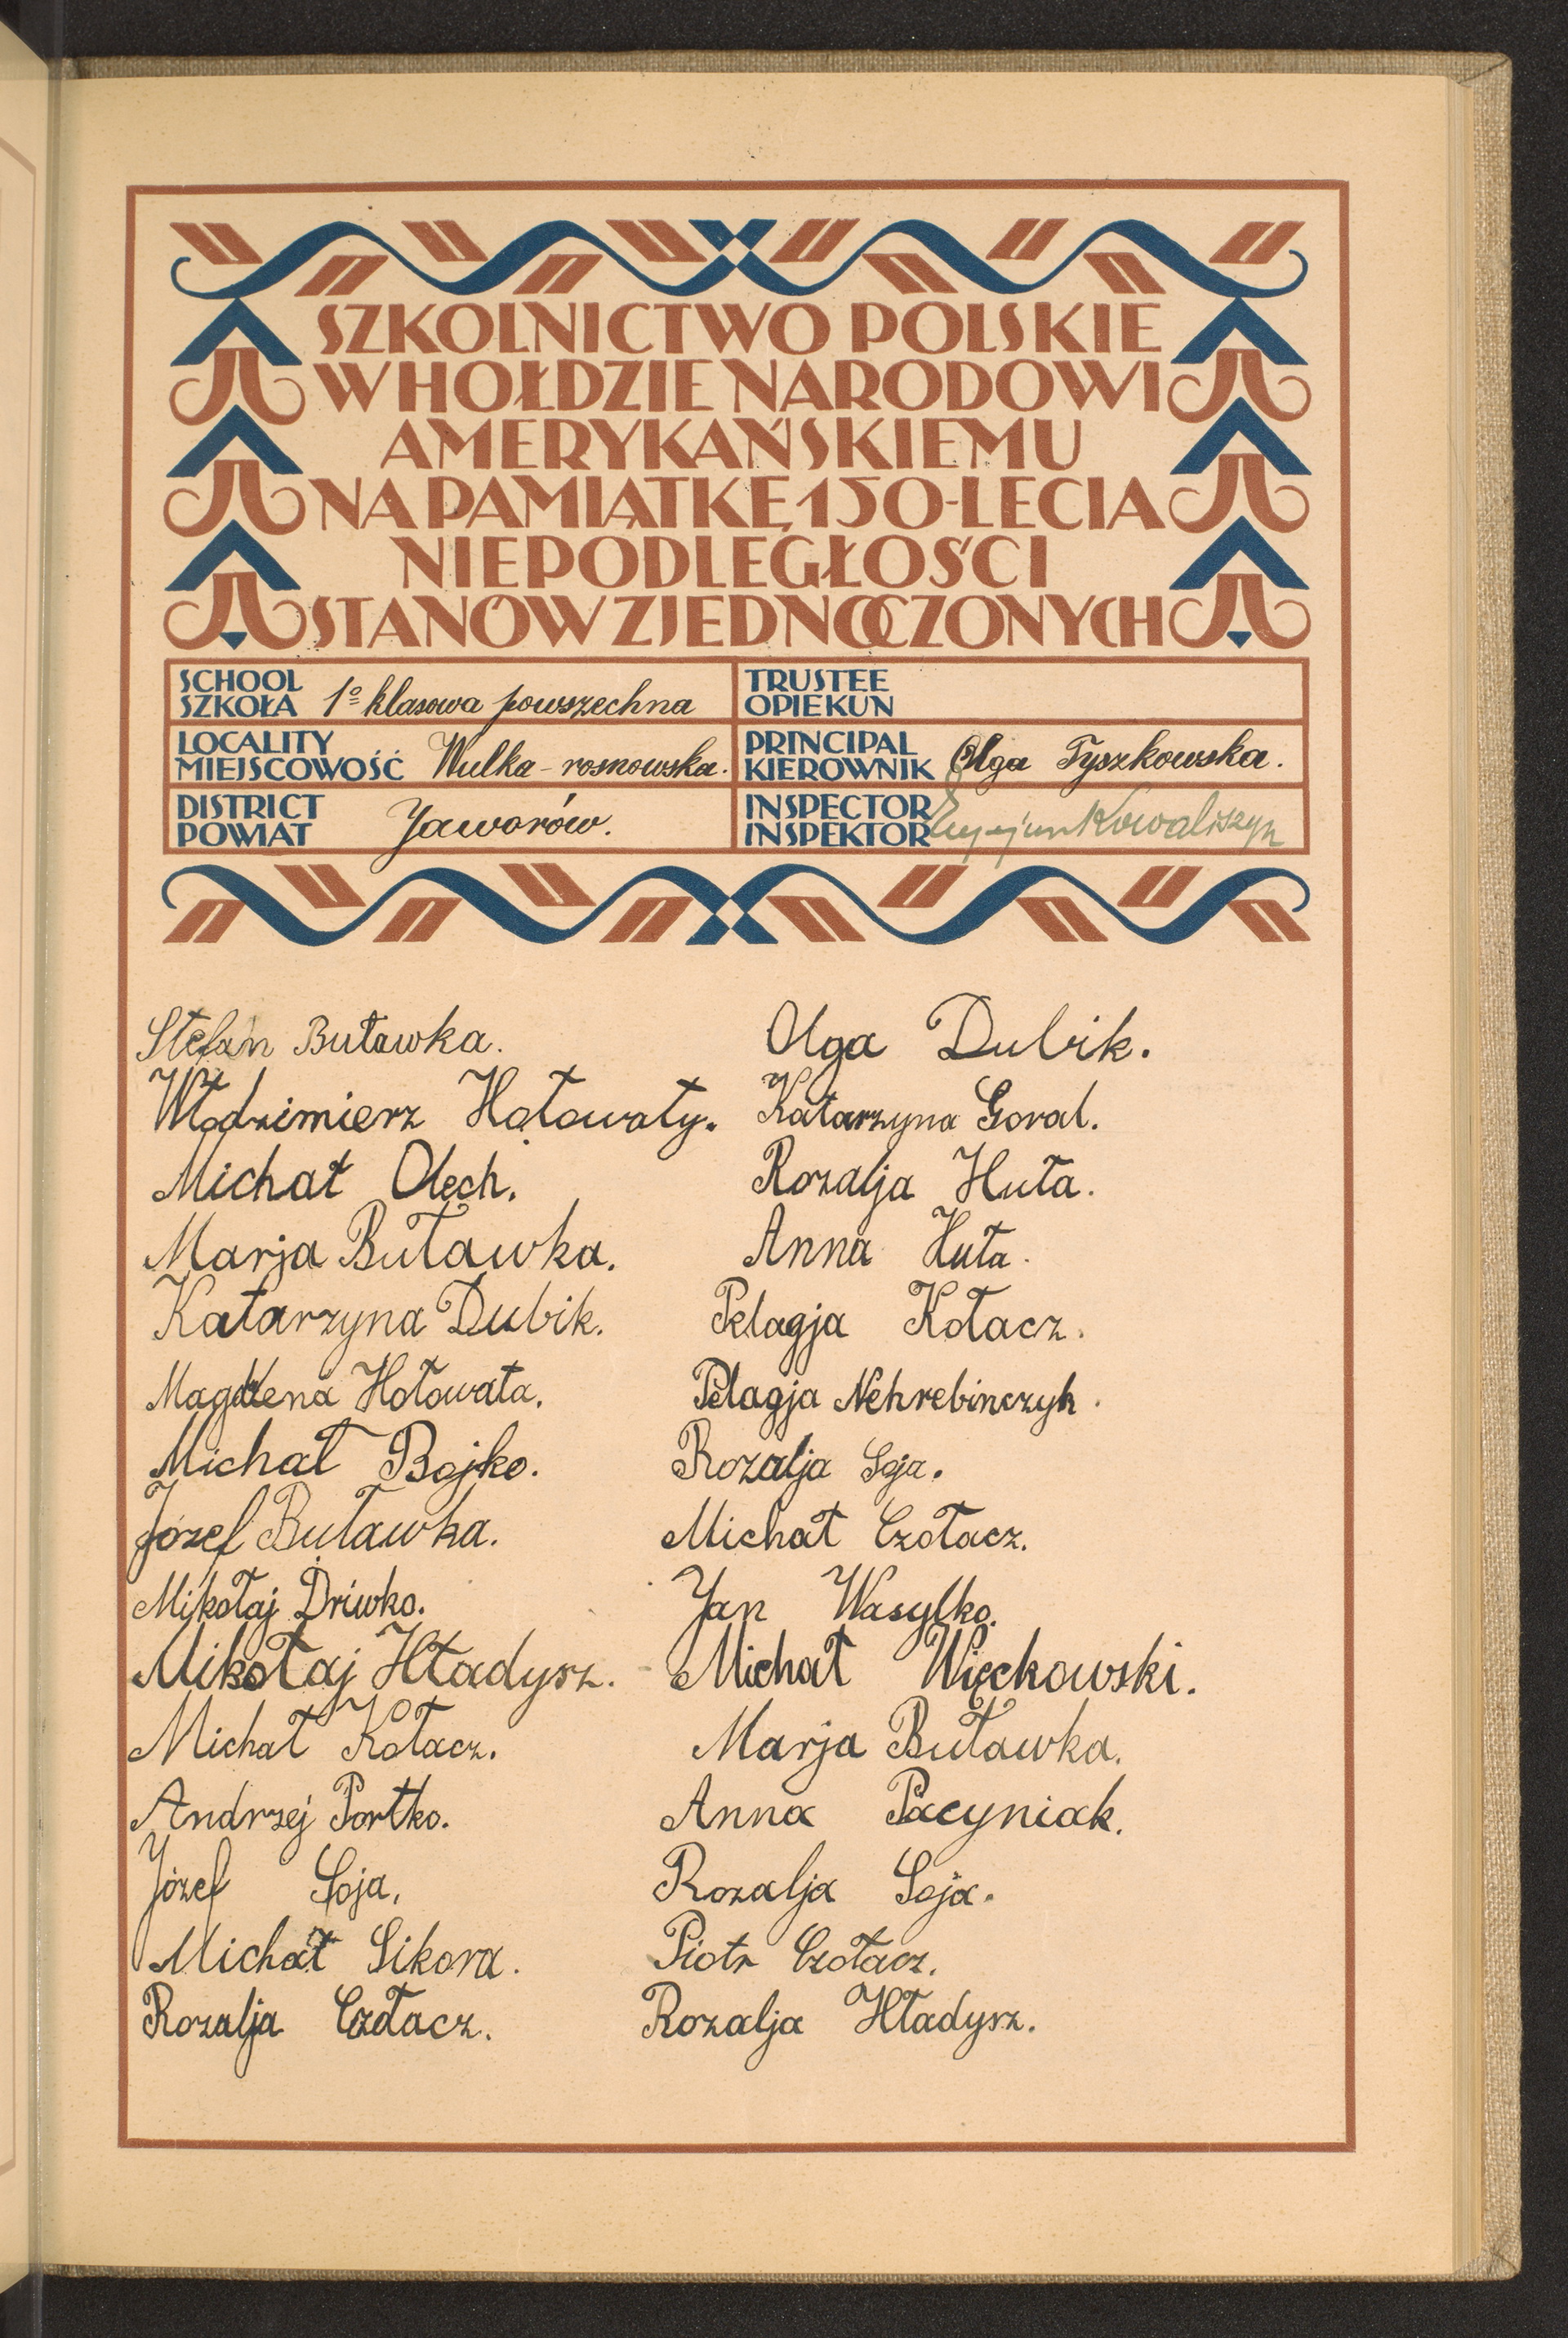 SZKOLNICTWO POLSKIE
W HOŁDZIE NARODOWI
AMERYKAŃSKIEMU
NA PAMIĄTKĘ 150-LECIA
NIEPODLEGŁOŚCI
STANÓW ZJEDNOCZONYCH
SCHOOL
SZKOŁA 1º klasowa powszechna
TRUSTEE
OPIEKUN
LOCALITY
MIEJSCOWOŚĆ Wulka-rosnowska.
PRINCIPAL
KIEROWNIK Olga Tyszkowska.
DISTRICT
POWIAT Jaworów.
INSPECTOR
INSPEKTOR Kowaliszyn
Stefan Buławka.
Włodzimierz Hołowaty.
Michał Olech.
Marja Buławka.
Katarzyna Dubik.
Magdlena Hołowata.
Michał Bojko.
Józef Buławka.
Mikołaj Driwko.
Mikołaj Hładysz.
Michał Kołacz.
Andrzej Portko.
Józef Soja.
Michał Sikora.
Rozalja Czołacz.
Olga Dubik.
Katarzyna Goral.
Rozalja Huta.
Anna Huta.
Pelagja Kołacz.
Pelagja Nehrebinczyk.
Rozalja Soja.
Michał Czołacz.
Jan Wasylko.
Michał Więckowski.
Marja Buławka.
Anna Pacyniak.
Rozalja Soja.
Piotr Czołacz.
Rozalja Hładysz.